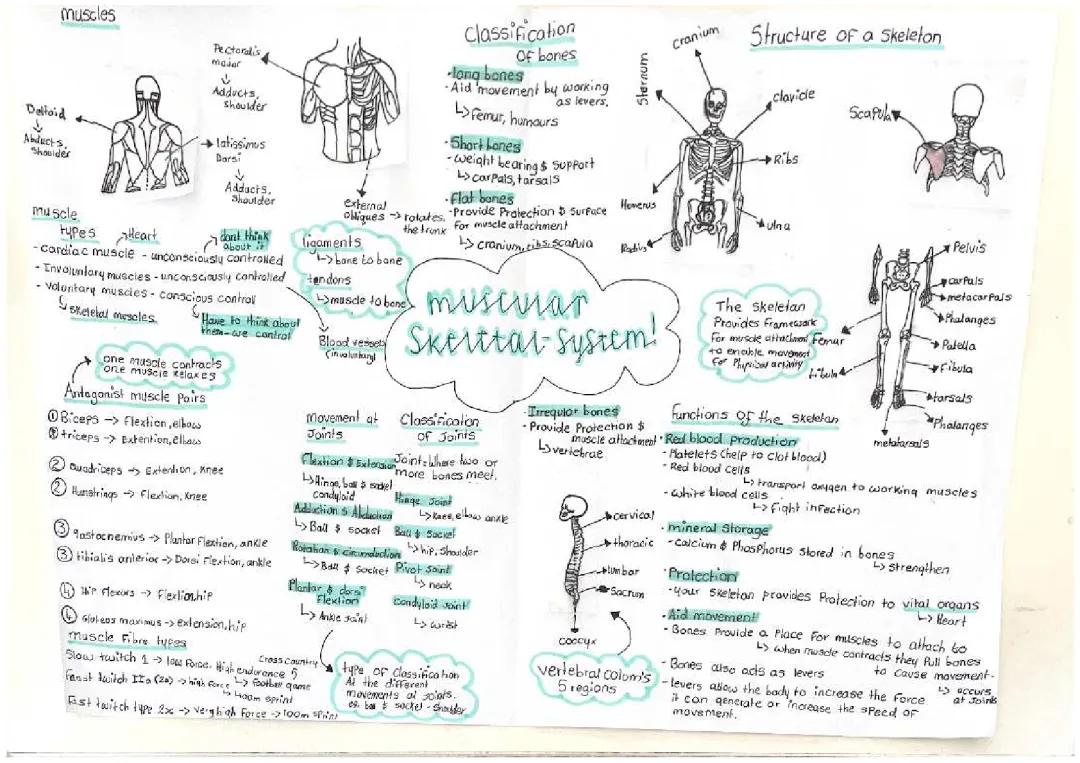 muscles
Pectoralis
major
Adducts,
shoulder
Deltoid
Abducts,
shoulder
latissimus
Dorsi
Adducts,
shoulder
external
obliques → rotates
the trunk
muscle
types
Heart
dont think
about it
- cardiac muscle - unconsciously controlled
- Involuntary muscles - unconsciously controlled
- Voluntary muscles - conscious control
↳ skeletal muscles
Have to think about
them - we control
Blood vessels
(involuntary)
ligaments
↳ bone to bone
tendons
↳ muscle to bone
one muscle contracts
one muscle relaxes
Antagonist muscle Pairs
① Biceps → Flextion, elbow
① triceps → Extention, elbow
② Quadriceps → Extention, Knee
② Hamstrings → Flextion, Knee
③ gastocnemius → Plantar Flextion, ankle
③ tibialis anterior → Dorsi Flextion, ankle
④ Hip Flexors → Flextion, hip
④ Gluteus maximus → extension, hip
muscle Fibre types
Slow twitch 1 → low Force, High endurance
Cross country
Fast twitch IIa (2a) → high force ↳ Football game
↳ 400m sprint
Fast twitch type 2x → Very high Force → 100m sprint
Classification
of bones
· long bones
· Aid movement by working
as levers.
↳ Femur, humours
· Short bones
- weight bearing & support
↳ carpals, tarsals
· Flat bones
- Provide Protection & surface
for muscle attachment
↳ cranium, ribs, scapula
muscular
Skelttal-System!
movement at
Joints
Flextion & Extension
↳ Hinge, ball & socket
condyloid
Adduction & Abduction
↳ Ball & socket
Rotation & circumduction
↳ Ball & socket
Plantar & dorsi
Flextion
↳ Ankle joint
Classification
of Joints
Joint: where two or
more bones meet.
Hinge Joint
↳ knee, elbow ankle
Ball & socket
↳ hip, shoulder
Pivot Joint
↳ neck
Condyloid Joint
↳ wrist
type of classification
At the different
movements at Joints.
eg. ball & socket - Shoulder
· Irregular bones
· Provide Protection &
muscle attachment
↳ vertebrae
cervical
thoracic
lumbar
Sacrum
coccyx
vertebral colom's
5 regions
Structure of a skeleton
cranium
Sternum
clavicle
Ribs
Humerus
Radius
ulna
Scapula
The skeleton
Provides Framework
For muscle attachment
to enable movement
For Physical activity
Pelvis
carpals
metacarpals
Phalanges
Femur
Patella
Fibula
tarsals
Phalanges
metatarsals
Functions of the skeleton
· Red blood production
- Platelets (help to clot blood)
- Red blood cells
↳ transport oxygen to working muscles
- White blood cells
↳ Fight infection
· mineral Storage
- calcium & Phosphorus stored in bones
↳ strengthen
· Protection
- your skeleton provides Protection to vital organs
↳ Heart
· Aid movement
- Bones Provide a Place for muscles to attach to
↳ when muscle contracts they Pull bones
to cause movement.
↳ occurs
at Joints
- Bones also acts as levers
- levers allow the body to increase the force
it can generate or increase the speed of
movement.